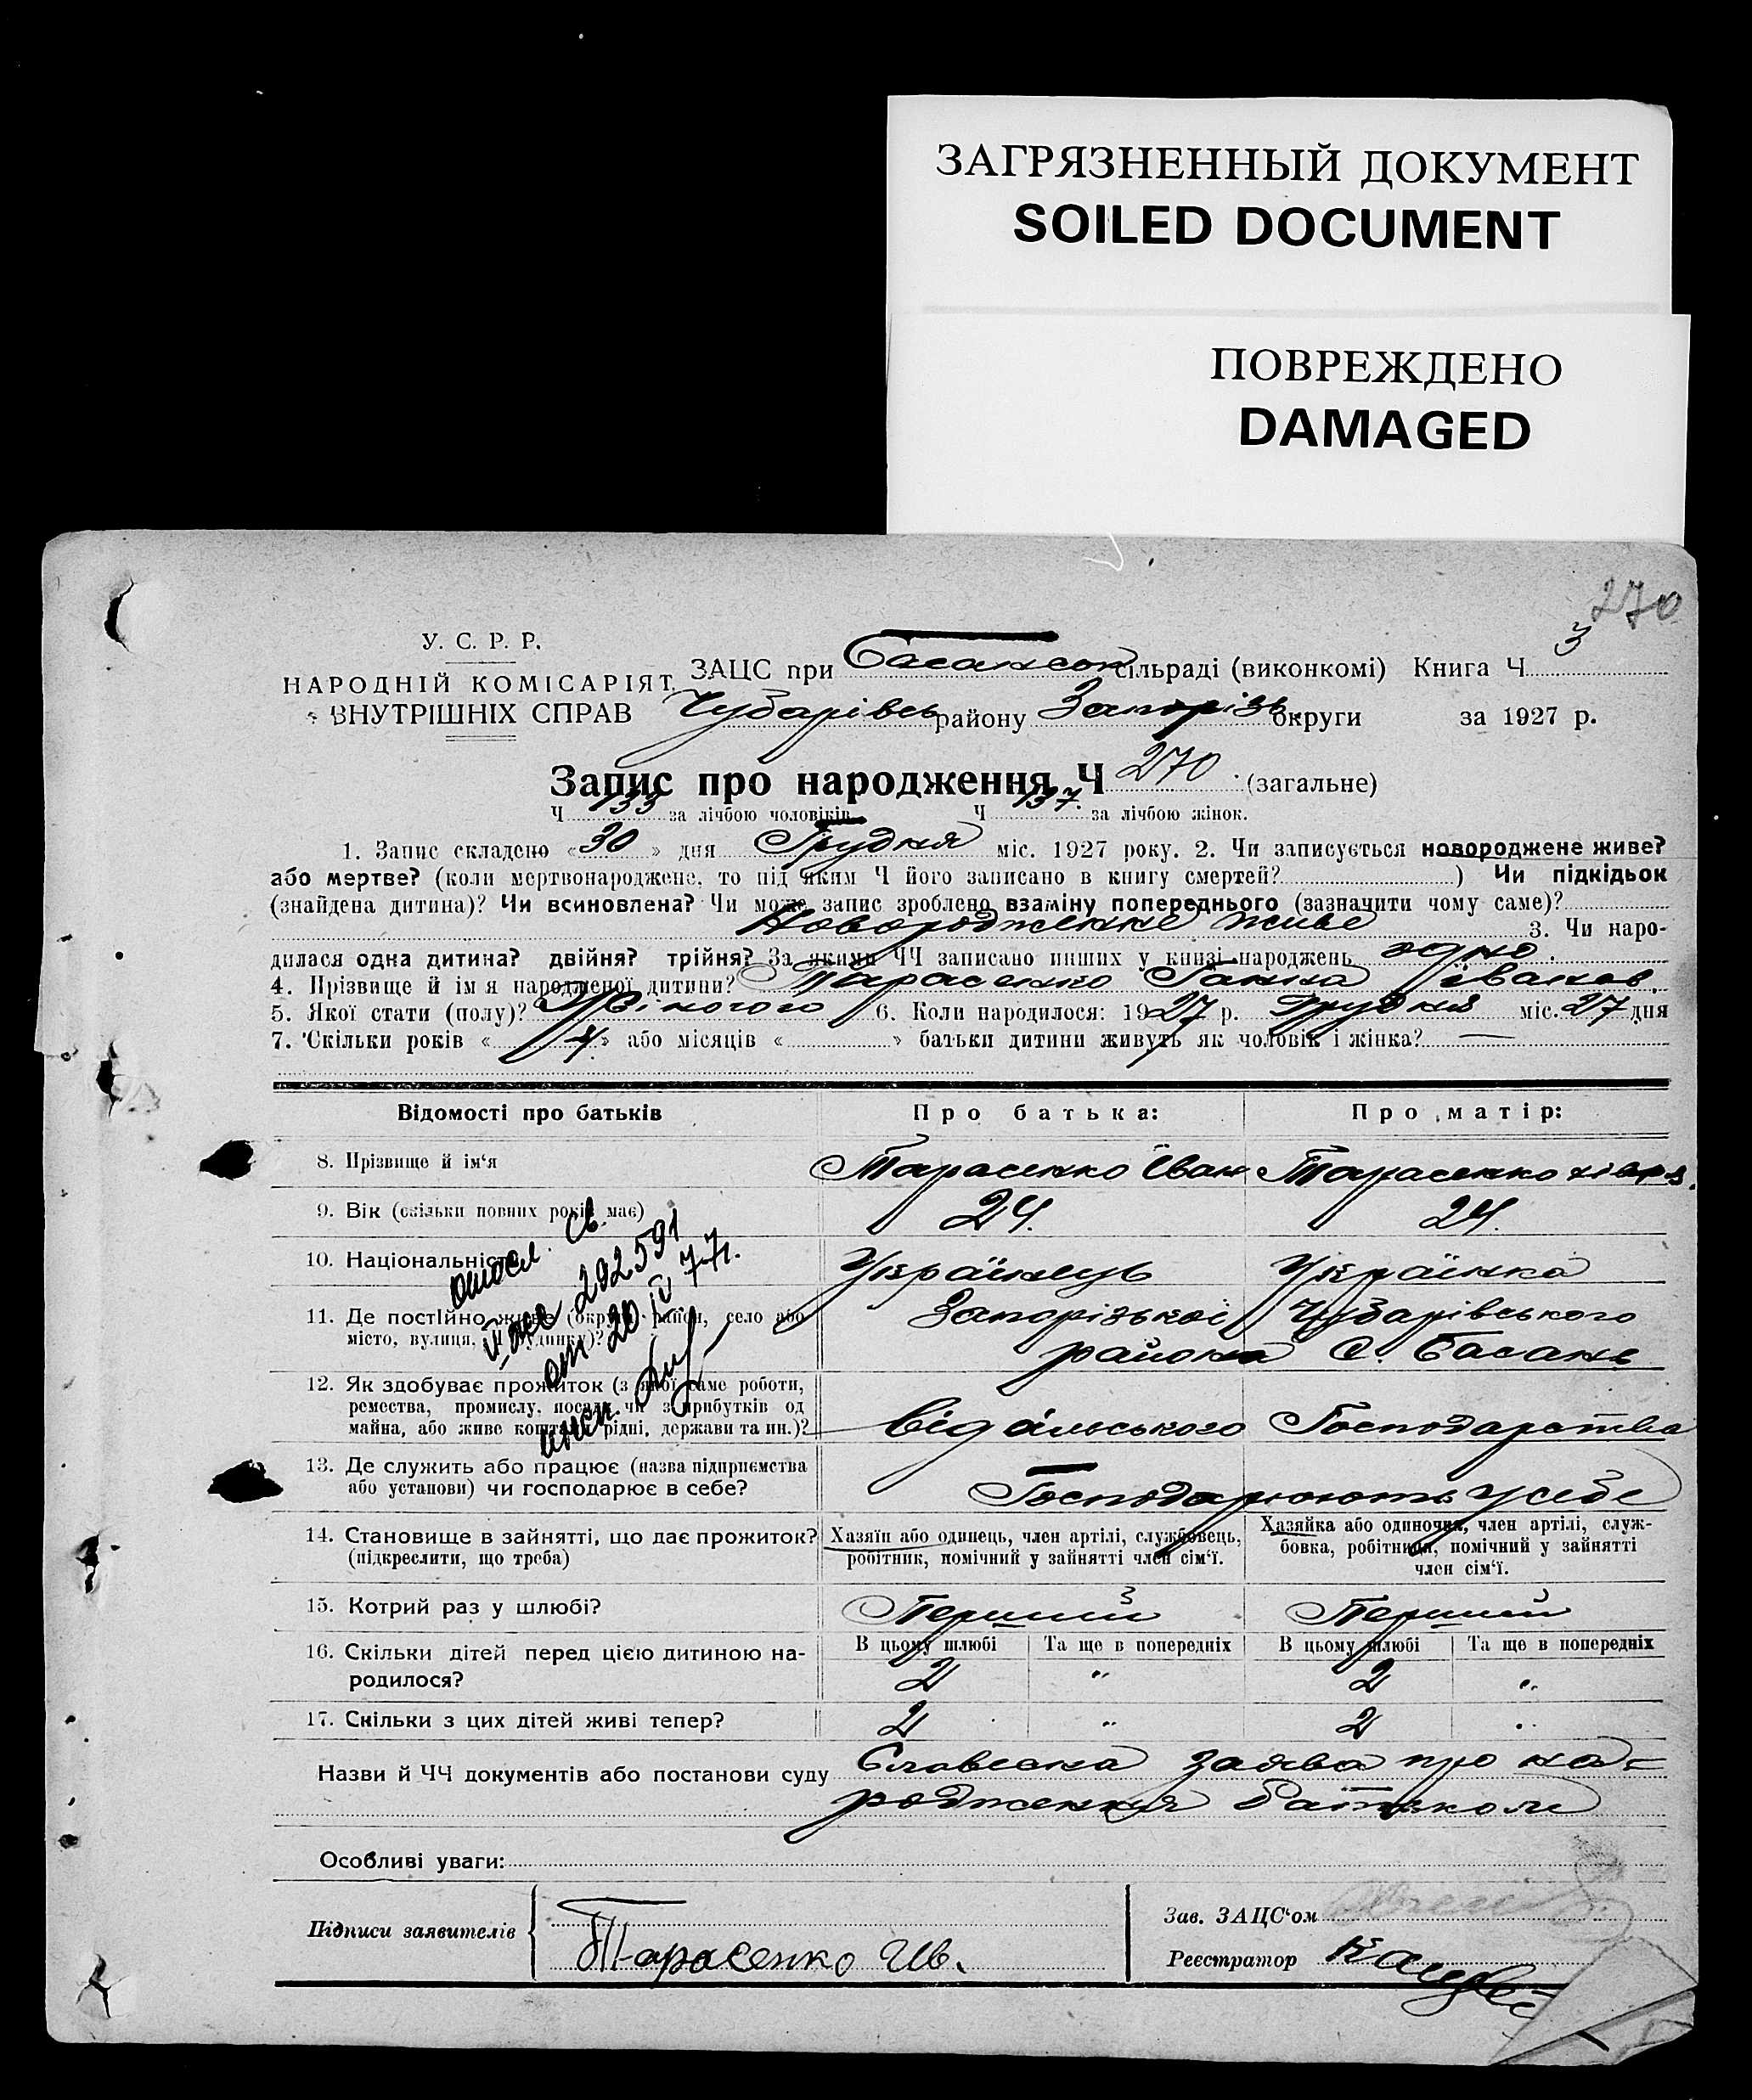 ЗАГРЯЗНЕННЫЙ ДОКУМЕНТ
SOILED DOCUMENT
ПОВРЕЖДЕНО
DAMAGED
270
У. С. Р. Р.
НАРОДНІЙ КОМІСАРІЯТ
ВНУТРІШНІХ СПРАВ
ЗАЦС при Басанськ сільраді (виконкомі) Книга Ч 3
Чубарівсь району Запорізь округи за 1927 р.
Запис про народження Ч 270 (загальне)
Ч 133 за лічбою чоловіків Ч 137 за лічбою жінок.
1. Запис складено «30» дня Грудня міс. 1927 року. 2. Чи записується новороджене живе?
або мертве? (коли мертвонароджене, то під яким Ч його записано в книгу смертей? ) Чи підкідьок
(знайдена дитина)? Чи всиновлена? Чи може запис зроблено взаміну попереднього (зазначити чому саме)?
Новородженне живе 3. Чи наро-
дилася одна дитина? двійня? трійня? За якими ЧЧ записано инших у книзі народжень одно.
4. Прізвище й ім я народженої дитини? Тарасенко Ганна Іванов.
5. Якої стати (полу)? Жіночого 6. Коли народилося: 1927 р. Грудня міс. 27 дня
7. Скільки років «4» або місяців « » батьки дитини живуть як чоловік і жінка? —
Відомості про батьків Про батька: Про матір:
8. Прізвище й ім‘я Тарасенко Іван Тарасенко
9. Вік (скільки повних років має) 24. 24.
10. Національність Українець Українка
11. Де постійно живе (округа, район, село або Запорізької Чубарівського
місто, вулиця, Ч будинку)? района с. Басань
12. Як здобуває прожиток (з якої саме роботи,
ремества, промислу, посади чи з прибутків од
майна, або живе коштами рідні, держави та ин.)? Від сільського Господарства
13. Де служить або працює (назва підприємства
або установи) чи господарює в себе? Господарюють у себе
14. Становище в зайнятті, що дає прожиток? Хазяїн або одинець, член артілі, службовець, Хазяйка або одиночка, член артілі, служ-
(підкреслити, що треба) робітник, помічний у зайнятті член сім‘ї. бовка, робітниця, помічний у зайнятті
член сім‘ї.
15. Котрий раз у шлюбі? Перший Перший
16. Скільки дітей перед цією дитиною на- В цьому шлюбі Та ще в попередніх В цьому шлюбі Та ще в попередніх
родилося? 2 " 2 "
17. Скільки з цих дітей живі тепер? 2 " 2 "
св.
292591
от 20 IV 77г.
Назви й ЧЧ документів або постанови суду Словесна заява про на-
родження батьком
Особливі уваги:
Підписи заявителів Тарасенко Ив.
Зав. ЗАЦС‘ом
Реєстратор